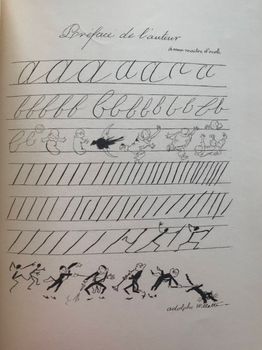 Préface de l'auteur
à mon maître d'école
a a a a a a a a
b b b b b b b b
adolphe willette